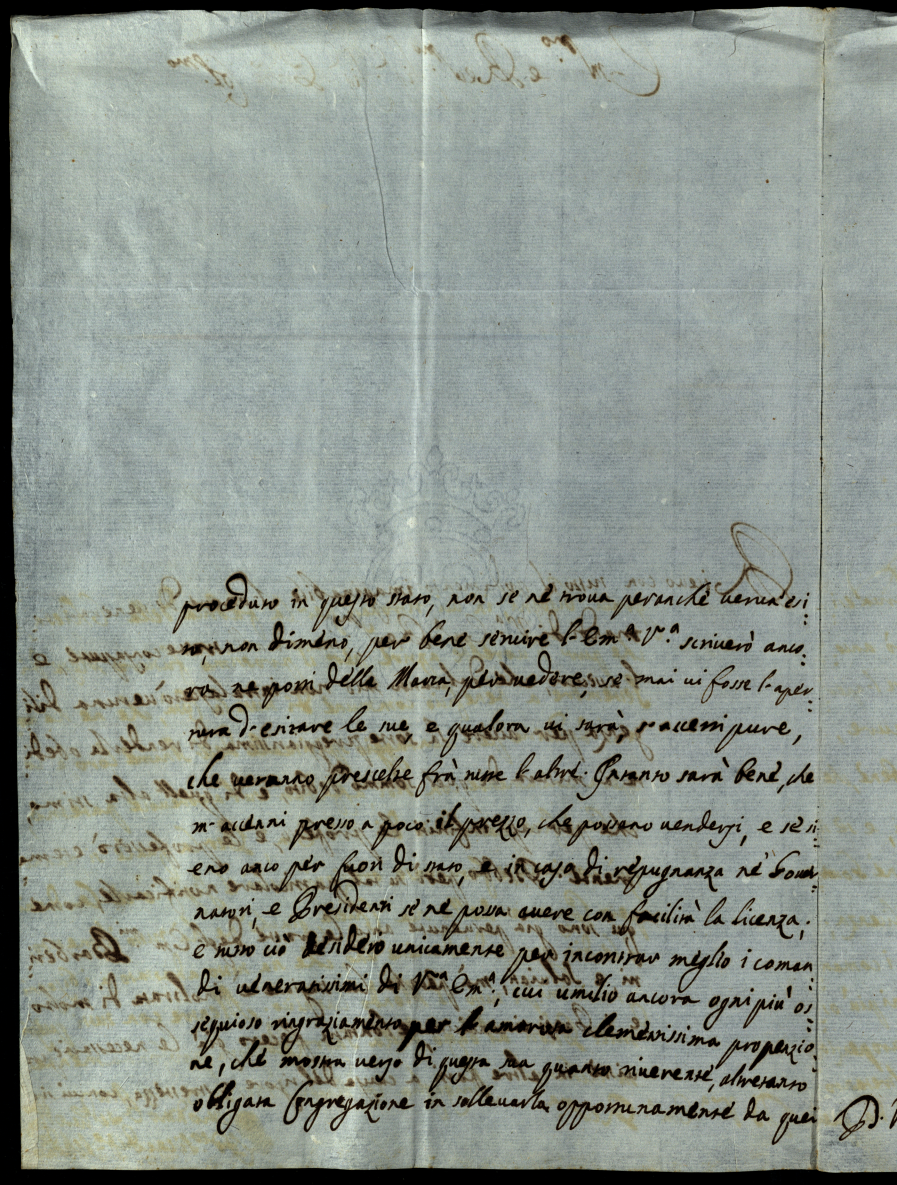 proceduto in questo stato, non se ne trova peranche veruna esi:
to, non dimeno, per bene servire l'Em.ª V.ª scriverò anco:
ra ne porti della Marca, per vedere, se mai vi fosse l'aper:
tura d'esitare le sue e qualora vi sarà, s'accerti pure,
che veranno prescelte frà tutte l'altre. Intanto sarà bene, che
m'accenni presso a poco il prezzo, che possano vendersi, e se si:
eno anco per fuori di stato, e in caso di repugnanza ne' Gover:
natori, e Presidenti se ne possa avere con facilità la licenza;
e tutto ciò desidero unicamente per incontrar meglio i coman:
di veneratissimi di V.ª Em.ª, cui umilio ancora ogni più os:
sequioso ringraziamento per l'amorosa clementissima propenzio:
ne, che mostra verso di questa sua quanto riverente, altretanto
obligata Congregazione in sollevarla opportunamente da quei